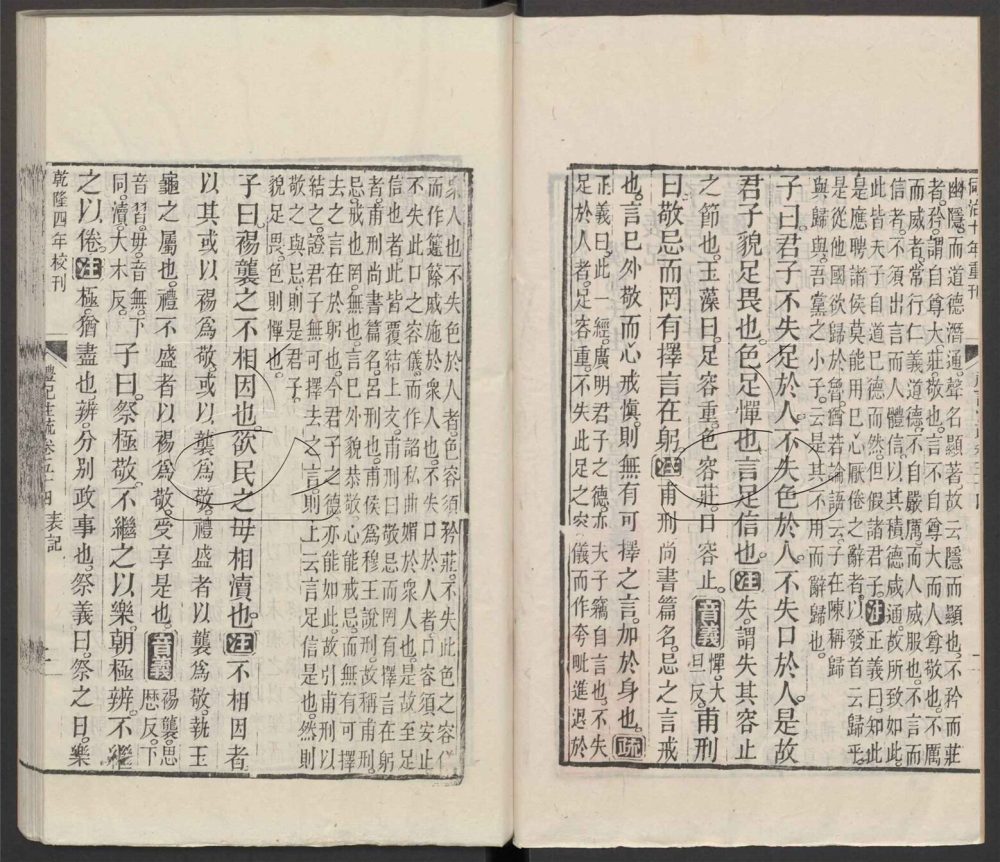 同治十年重刊
幽隱而道德潛通。聲名顯著。故云隱而顯也。不矜而莊
者。矜。謂自尊大。莊。敬也。言不自尊大而人尊敬也。不厲
而威者。常行仁義道德。不自嚴厲而人威服也。不言而
信者。不須出言而人體信。以其積德咸通。故所致如此。
此皆夫子自道已德而然。但假諸君子。注正義曰。知此
是應聘諸侯莫能用已心厭倦之辭者。以發首云歸乎。
是從他國欲歸於魯。猶若論語云。子在陳稱歸
與歸與。吾黨之小子。云是其不用而辭歸也。
子曰。君子不失足於人。不失色於人。不失口於人。是故
君子貌足畏也。色足憚也。言足信也。注失。謂失其容止
之節也。玉藻曰。足容重。色容莊。口容止。音義憚。大旦反。甫刑
曰。敬忌而罔有擇言在躬。注甫刑。尚書篇名。忌之言戒
也。言已外敬而心戒愼。則無有可擇之言。加於身也。疏
正義曰。此一經。廣明君子之德。亦夫子竊自言也。不失
足於人者。足容重。不失此足之容儀而作夸毗進退於
眾人也。不失色於人者。色容須矜莊。不失此色之容儀
而作籧篨戚施於眾人也。不失口於人者。口容須安止。
不失此口之容儀。而作諂私曲媚於眾人也。是故至足
信也者。此皆覆結上文。甫刑曰敬忌而罔有擇言在躬
者。甫刑。尚書篇名。呂刑也。甫侯爲穆王說刑。故稱甫刑。
忌。戒也。罔。無也。言已外貌恭敬。心能戒忌。而無有可擇
去之言在於躬也。今君子之德。亦能如此。故引甫刑以
結之。證君子無可擇去之言。則上云言足信是也。然則
敬之與忌。則是君子。
貌足畏。色足憚也。
子曰。裼襲之不相因也。欲民之毋相瀆也。注不相因者。
以其或以裼爲敬。或以襲爲敬。禮盛者以襲爲敬。執玉
龜之屬也。禮不盛者以裼爲敬。受享是也。音義裼襲。思歷反。下
音習。毋。音無。下同。瀆。大木反。子曰。祭極敬。不繼之以樂。朝極辨。不繼
之以倦。注極。猶盡也。辨。分別政事也。祭義曰。祭之日。樂
乾隆四年校刊
禮記注疏卷五十四
表記